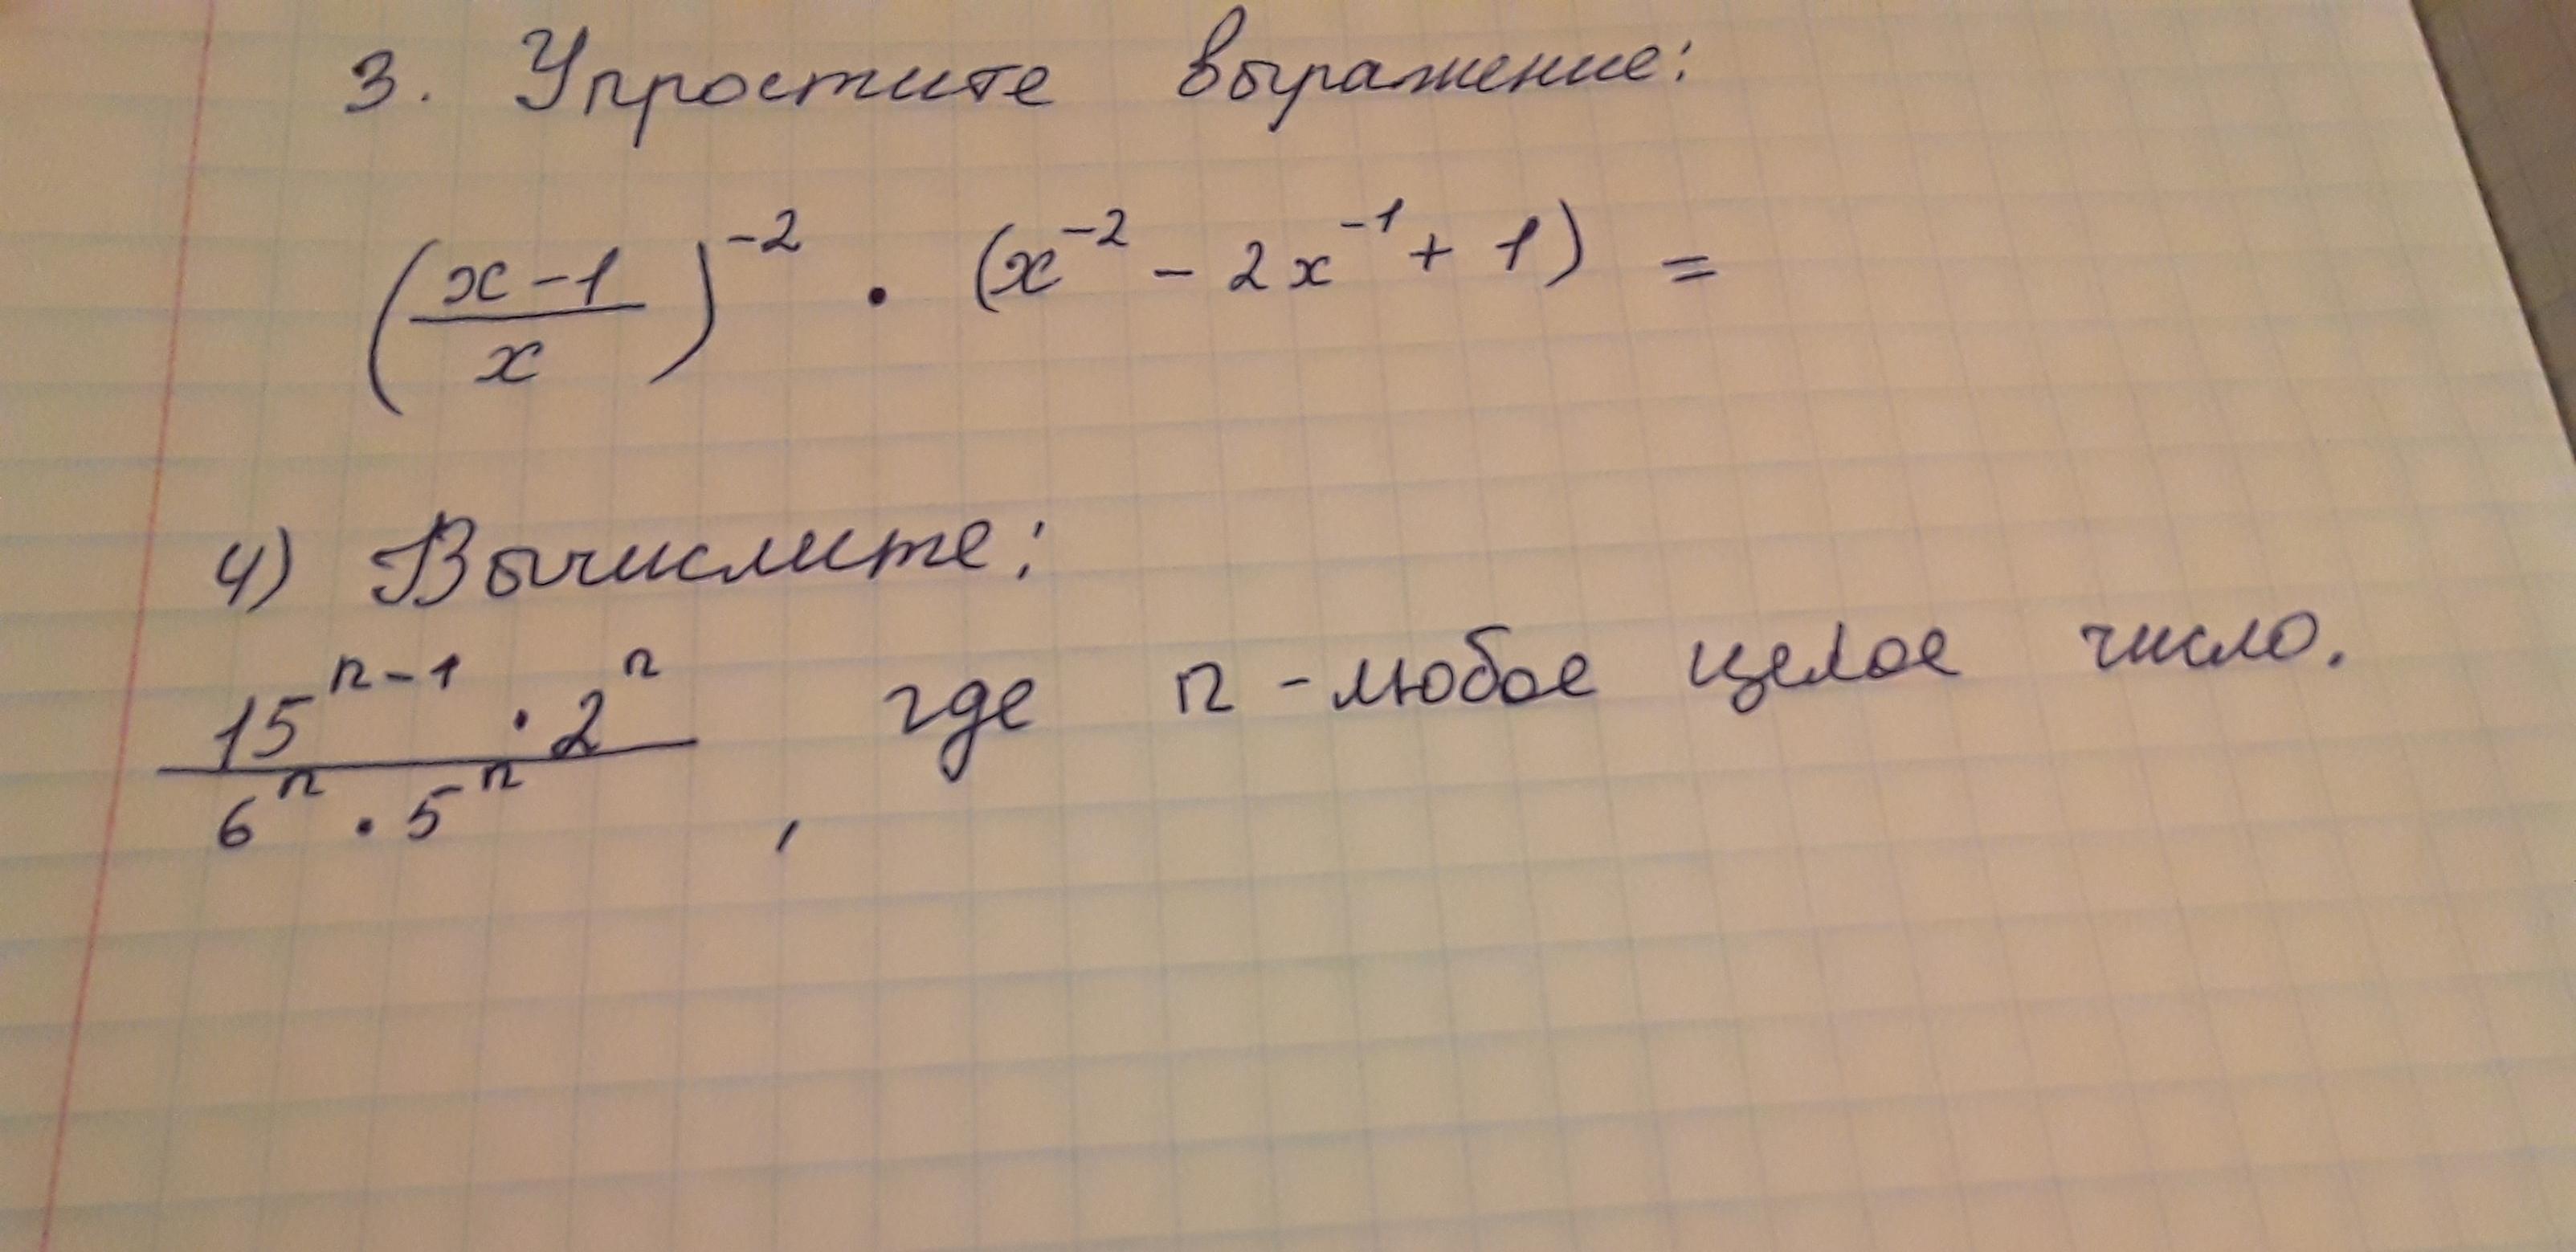 3. Упростите выражение:
(x-1/x)^-2 · (x^-2 - 2x^-1 + 1) =
4) Вычислите:
15^n-1 · 2^n / 6^n · 5^n , где n - любое целое число.